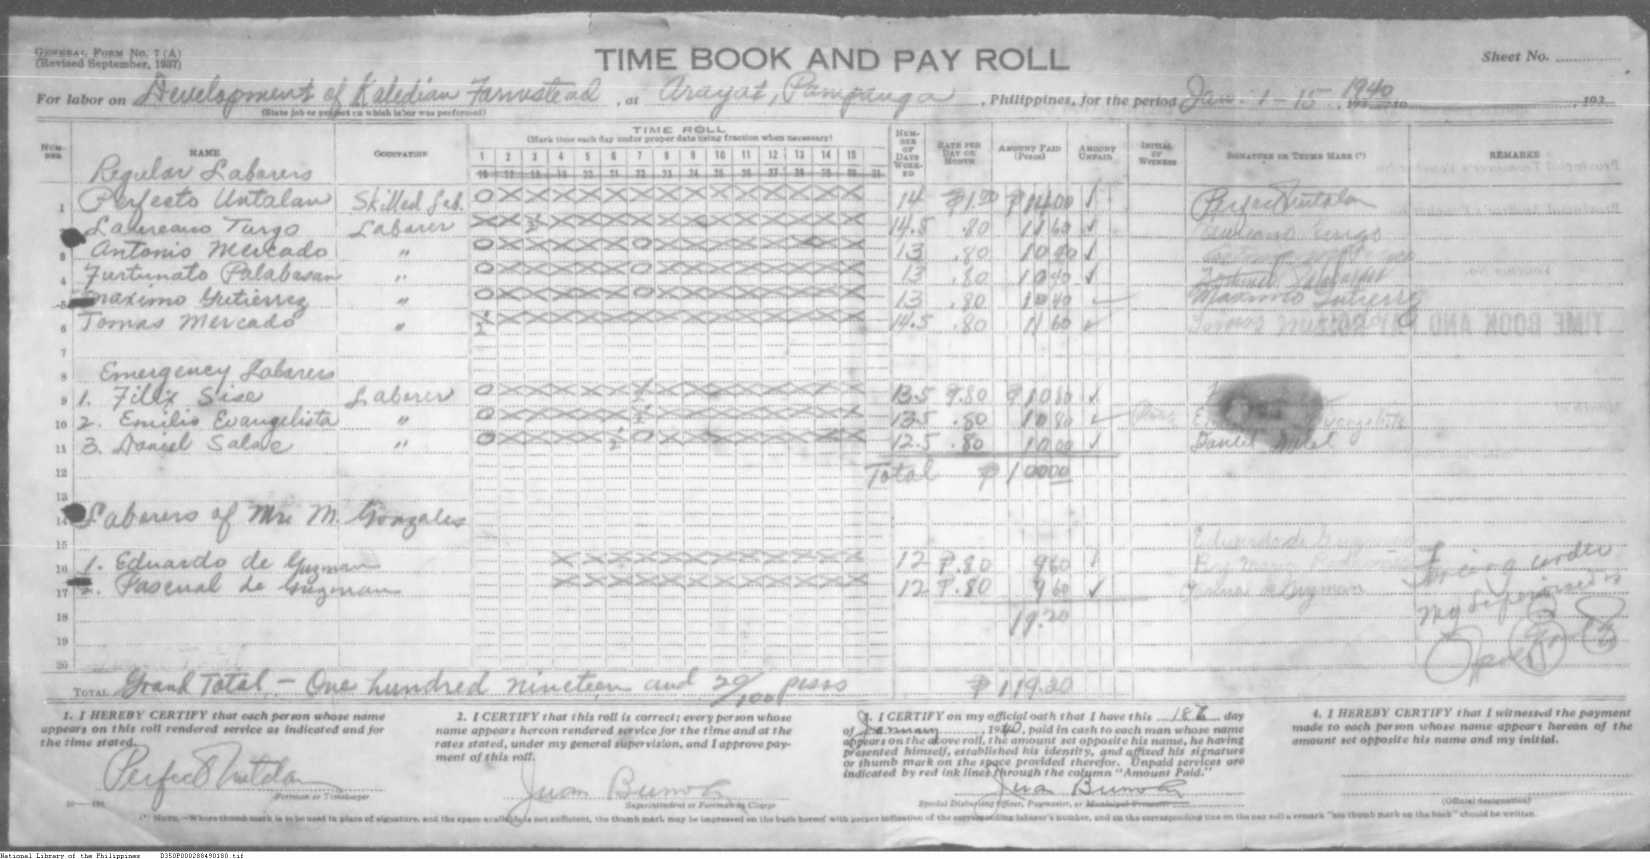 GENERAL FORM NO. 7 (A)
(Revised September, 1937)
TIME BOOK AND PAY ROLL
Sheet No.
For labor on Development of Kaledian Farmstead, at Arayat, Pampanga, Philippines, for the period Jan. 1-15, 1940, 193
(State job or project on which labor was performed)
NUMBER NAME OCCUPATION TIME ROLL NUMBER OF DAYS WORKED RATE PER DAY OR MONTH AMOUNT PAID (PESOS) AMOUNT UNPAID INITIAL OF WITNESS SIGNATURE OR THUMB MARK (*) REMARKS
(Mark time each day under proper date using fraction when necessary)
1 2 3 4 5 6 7 8 9 10 11 12 13 14 15
16 17 18 19 20 21 22 23 24 25 26 27 28 29 30 31
Regular Laborers
1 Perfecto Untalan Skilled Lab. 14 ₱1.00 ₱14.00 ✓
Laureano Turgo Laborer 14.5 .80 11 60 ✓
3 Antonio Mercado " 13 .80 10 40 ✓
4 Furtunato Palabasan " 13 .80 10 40 ✓
5 Maximo Gutierrez " 13 .80 10 40 ✓ Maximo Gutierrez
6 Tomas Mercado " 14.5 .80 11 60 ✓
7
8 Emergency Laborers
9 1. Filix Sise Laborer 13.5 ₱.80 ₱10 80 ✓
10 2. Emilio Evangelista " 13.5 .80 10 80 ✓ Evangelista
11 3. Daniel Salac " 12.5 .80 10 00 ✓ Daniel
12 Total ₱100 00
13
14 Laborers of Mr. M. Gonzales
15
16 1. Eduardo de Guzman 12 ₱.80 9 60 ✓ Eduardo de Guzman
17 2. Pascual de Guzman 12 ₱.80 9 60 ✓ de Guzman
18 19.20
19
20
TOTAL Grand Total - One hundred nineteen and 20/100 pesos ₱119.20
1. I HEREBY CERTIFY that each person whose name appears on this roll rendered service as indicated and for the time stated.
Foreman or Timekeeper
2. I CERTIFY that this roll is correct; every person whose name appears hereon rendered service for the time and at the rates stated, under my general supervision, and I approve payment of this roll.
Juan
Superintendent or Foreman in Charge
3. I CERTIFY on my official oath that I have this 18th day of January, 1940, paid in cash to each man whose name appears on the above roll, the amount set opposite his name, he having presented himself, established his identity, and affixed his signature or thumb mark on the space provided therefor. Unpaid services are indicated by red ink lines through the column "Amount Paid."
Juan
Special Disbursing Officer, Paymaster, or Municipal Treasurer
4. I HEREBY CERTIFY that I witnessed the payment made to each person whose name appears hereon of the amount set opposite his name and my initial.
(Official designation)
(*) NOTE.—Where thumb mark is to be used in place of signature, and the space available is not sufficient, the thumb mark may be impressed on the back hereof with proper indication of the corresponding laborer's number, and on the corresponding line on the pay roll a remark "see thumb mark on the back" should be written.
National Library of the Philippines D350P000288490180.tif